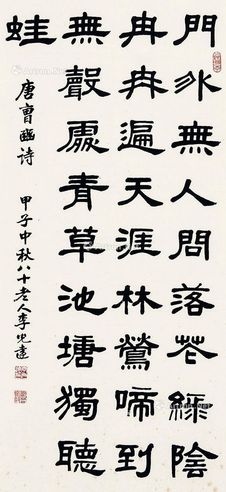 門外無人問落花綠陰
冉冉遍天涯林鶯啼到
無聲處青草池塘獨聽
蛙
唐曹豳诗
甲子中秋八十老人李